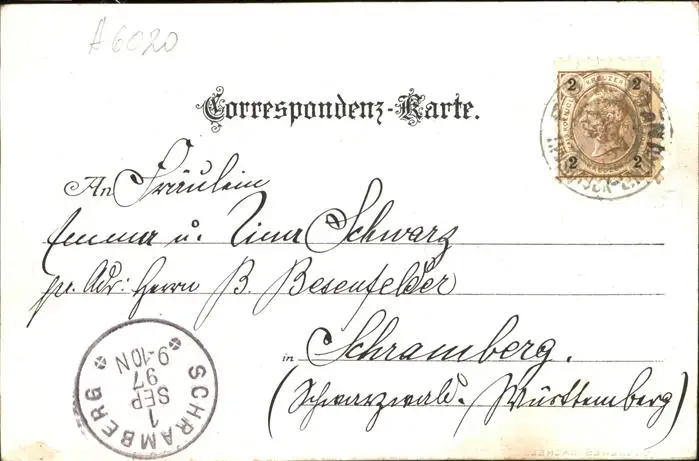 A 6020
Correspondenz-Karte.
An Fräulein
Emma u. Tina Schwarz
pr. Adr: Herrn B. Besenfelder
in Schramberg.
(Schwarzwald. Württemberg)
SCHRAMBERG
1
SEP
97
9-10N
2 KREUZER 2
2 2